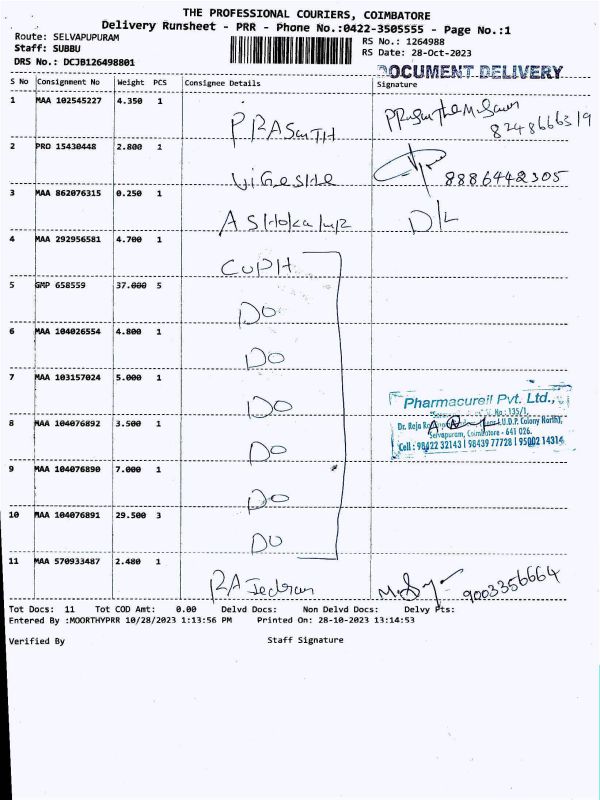 THE PROFESSIONAL COURIERS, COIMBATORE
Delivery Runsheet - PRR - Phone No.:0422-3505555 - Page No.:1
Route: SELVAPUPURAM
RS No.: 1264988
Staff: SUBBU
RS Date: 28-Oct-2023
DRS No.: DCJB126498801
DOCUMENT DELIVERY
S No Consignment No Weight PCS Consignee Details Signature
1 MAA 102545227 4.350 1 PRASANTH 8248666319
2 PRO 15430448 2.800 1 8886442305
3 MAA 862076315 0.250 1 D/L
4 MAA 292956581 4.700 1
5 GMP 658559 37.000 5 DO
6 MAA 104026554 4.800 1 DO
7 MAA 103157024 5.000 1 DO
Pharmacureil Pvt. Ltd.,
No: 135/1,
8 MAA 104076892 3.500 1 DO
I.U.D.P. Colony North),
Selvapuram, Coimbatore - 641 026.
Cell : 98422 32143 | 98439 77728 | 95002 14314
9 MAA 104076890 7.000 1 DO
10 MAA 104076891 29.500 3 DO
11 MAA 570933487 2.480 1 9003356664
Tot Docs: 11 Tot COD Amt: 0.00 Delvd Docs: Non Delvd Docs: Delvy Pts:
Entered By :MOORTHYPRR 10/28/2023 1:13:56 PM Printed On: 28-10-2023 13:14:53
Verified By Staff Signature